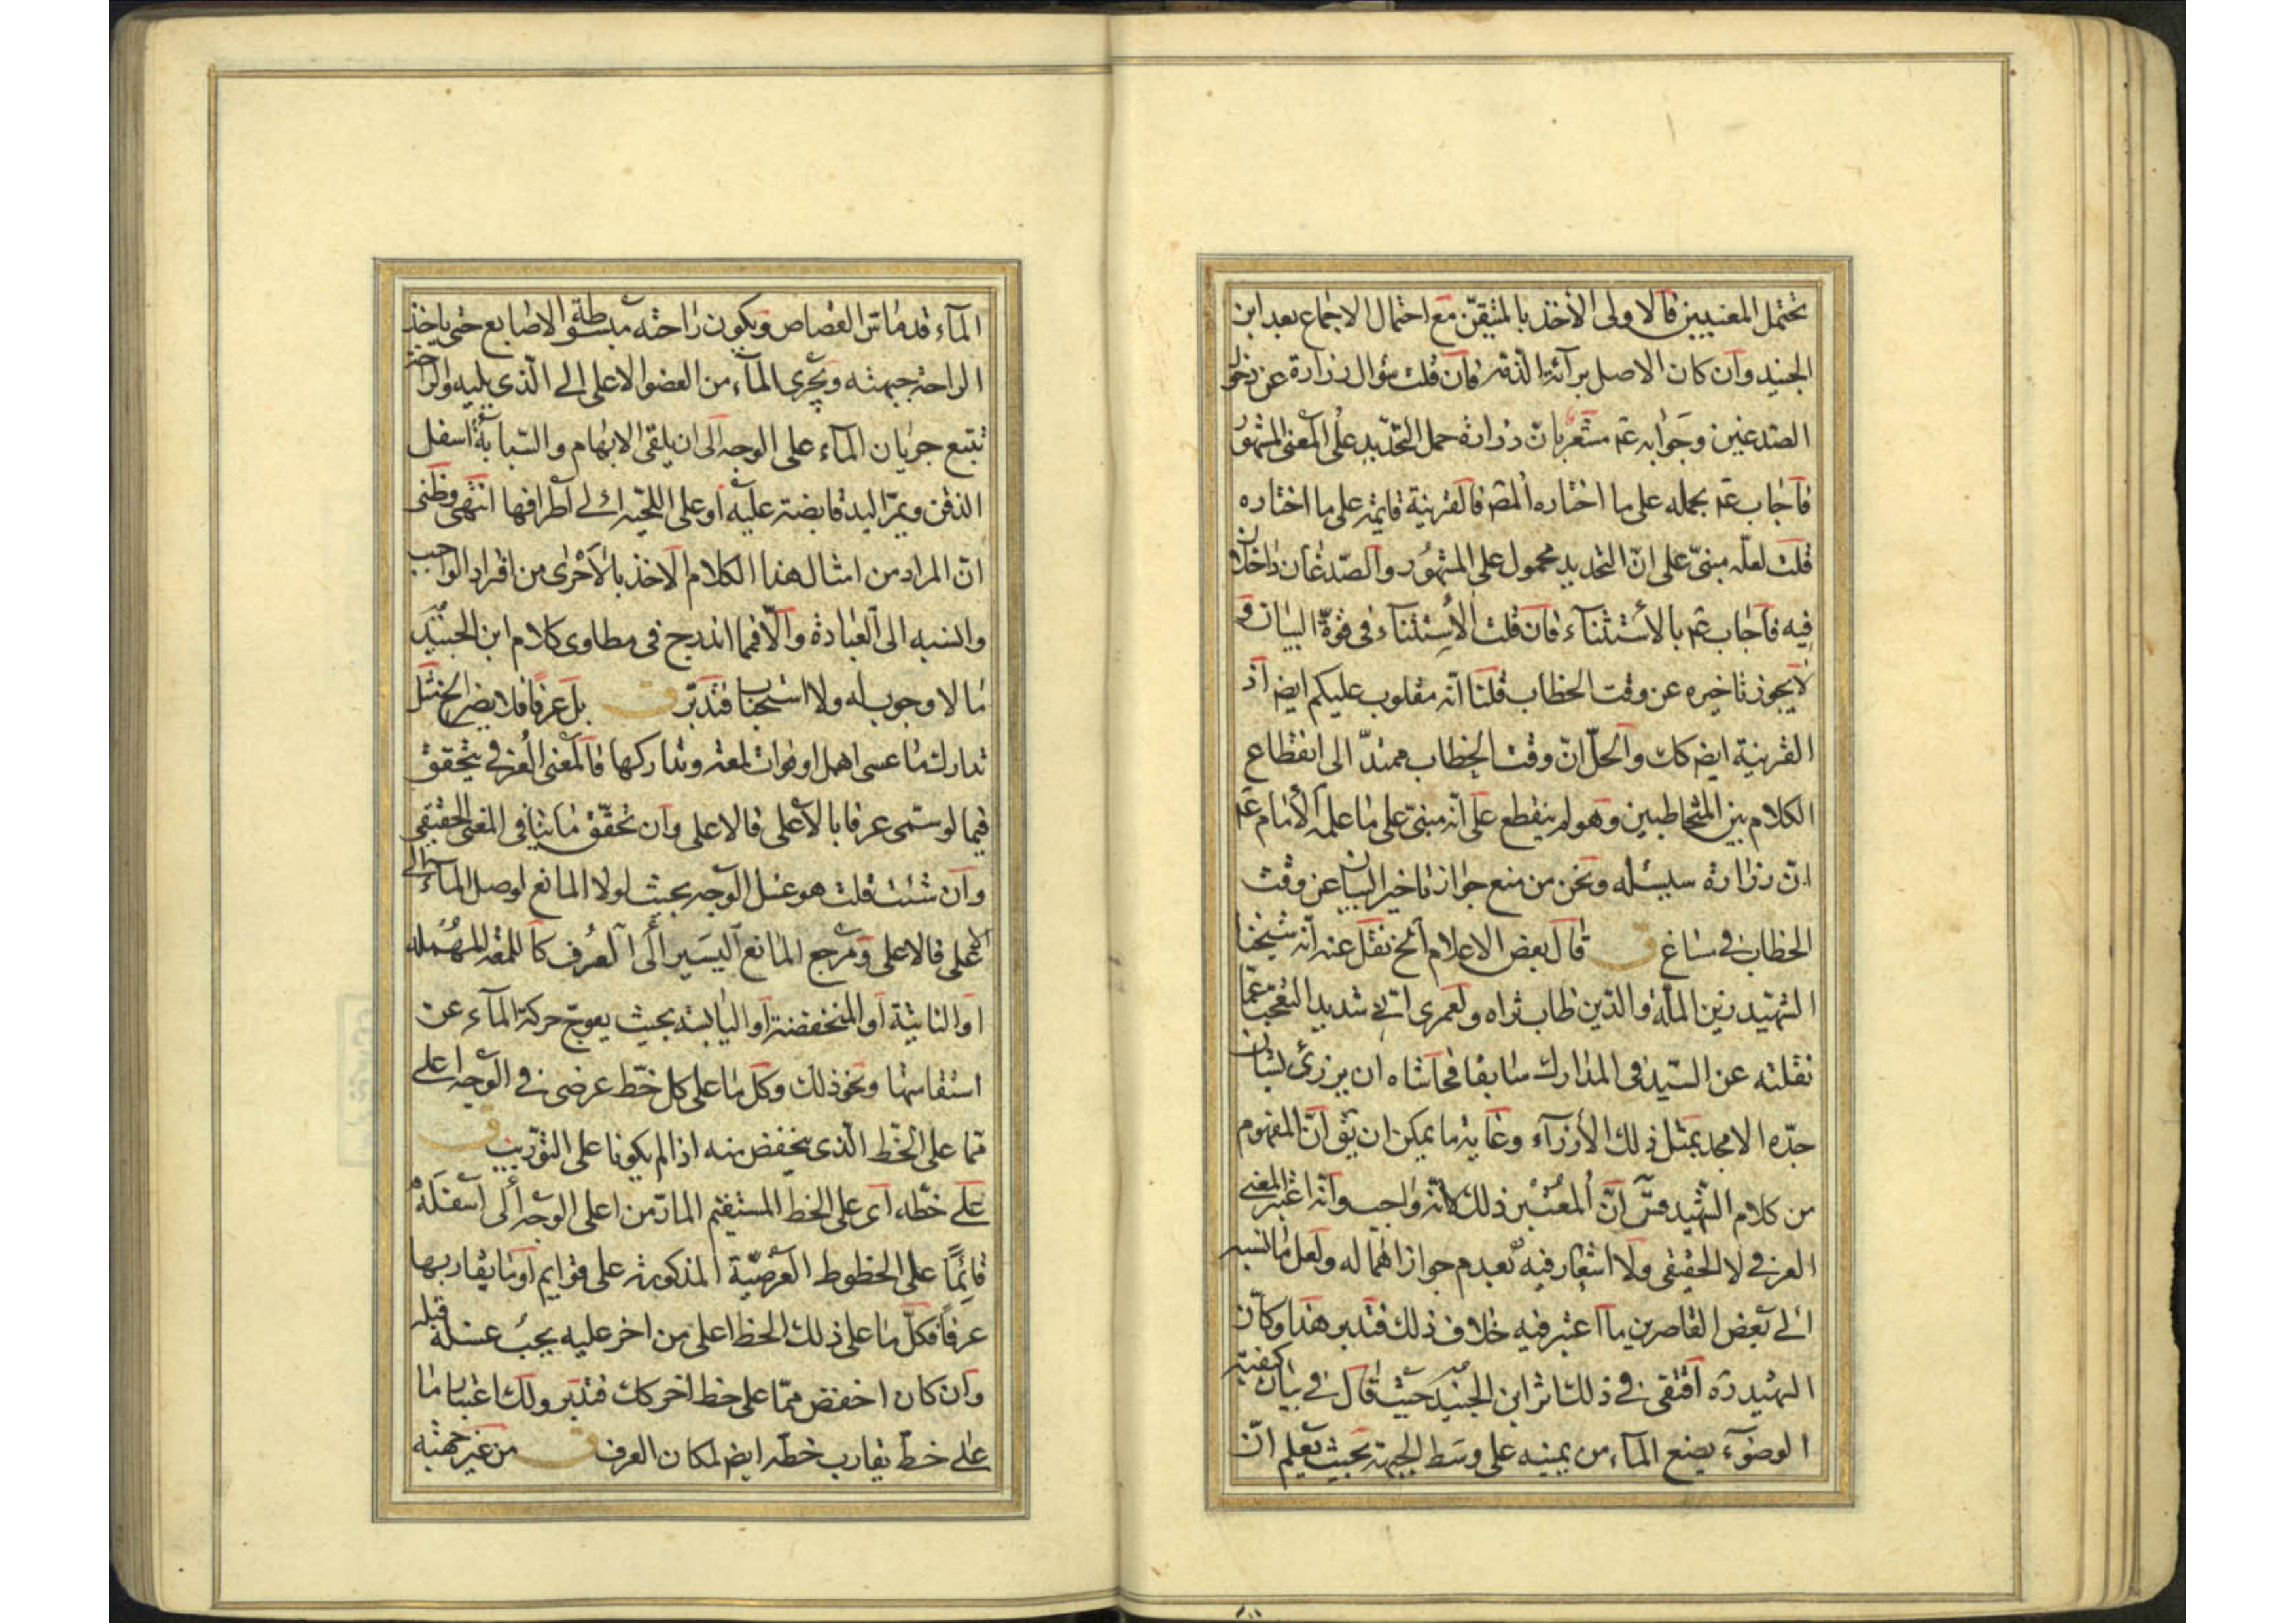 تحتمل المعنيين فالاولى الأخذ بالمتيقن مع احتمال الاجماع بعد ابن
الجنيد وان كان الاصل برائة الذمة فان قلت سؤال زرارة عن دخول
الصدغين وجوابه عم مشعر بان زرارة حمل التحديد على المعنى المشهور
فاجاب عم بحمله على ما اختاره المصر فالقرينة قايمة على ما اختاره
قلت لعله مبنى على ان التحديد محمول على المشهور والصدغان داخلان
فيه فاجاب عم بالأستثناء فان قلت الأستثناء فى قوة البيان و
لا يجوز تاخيره عن وقت الخطاب قلنا انه مقلوب عليكم ايضا اذ
القرينة ايضا كك والحل ان وقت الخطاب ممتد الى انقطاع
الكلام بين المتخاطبين وهو لم ينقطع على انه مبنى على ما علمه الأمام عم
ان زرارة سيسئله ونحن من منع جواز تاخير البيان عن وقت
الخطاب فى مساغ ق قال بعض الاعلام الخ نقل عنه انه شيخنا
الشهيد زين الملة والدين طاب ثراه ولعمرى انى شديد التعجب عما
نقلته عن السيد فى المدارك سابقا فحاشاه ان يزرئ بشان
جده الامجد بمثل ذلك الأزراء وغاية ما يمكن ان يق ان المفهوم
من كلام الشهيد ان المعتبر ذلك لانه واجب وانه اعتبر المعنى
العرفى لا الحقيقى ولا اشعار فيه بعدم جواز اهماله ولعل ما نسبه
الى بعض القاصرين ما اعتبر فيه خلاف ذلك فتدبر هذا وكان
الشهيد ره اقتفى فى ذلك اثر ابن الجنيد حيث قال فى بيان كيفية
الوضوء يضع الماء من يمينه على وسط الجبهة بحيث يعلم ان
الماء قد ماس القصاص ويكون راحته مبسوطة الاصابع حتى ياخذ
الراحة جبهته ويجرى الماء من العضو الاعلى الى الذى يليه والراحة
تتبع جريان الماء على الوجه الى ان يلقى الابهام والسبابة اسفل
الذقن ويمر اليد قابضة عليه او على اللحية الى اطرافها انتهى وظنى
ان المراد من امثال هذا الكلام الاخذ بالأحرى من افراد الواجب
والنسبه الى العبادة والا فما اندرج فى مطاوى كلام ابن الجنيد
ما لا وجوب له ولا استحبابا فتدبر ق بل عرفا فلا يضر
تدارك ما عسى اهمل او فوات لمعة وتداركها فالمعنى العرفى يتحقق
فيما لو سمى عرفا بالأعلى فالاعلى وان تحقق ما ينافى المعنى الحقيقى
وان شئت قلت هو غسل الوجه بحيث لولا المانع لوصل الماء الى
الاعلى فالاعلى ومرجع المانع اليسير الى العرف كاللمعة المهملة
او الناتية او المنخفضة او اليابسة بحيث يعوج حركة الماء عن
استقامتها ونحو ذلك وكل ما على كل خط عرضى فى الوجه اعلى
مما على الخط الذى ينخفض منه اذا لم يكونا على التوريب ق
على خطه اى على الخط المستقيم المار من اعلى الوجه الى اسفله
قائما على الخطوط العرضية المذكورة على قوايم او ما يقاربها
عرفا فكل ما على ذلك الخط اعلى من اخر عليه يجب غسله قبله
وان كان اخفض مما على خط اخر كك فتدبر ولك اعتبار ما
على خط يقارب خطه ايضا لمكان العرف ق من غير جهته